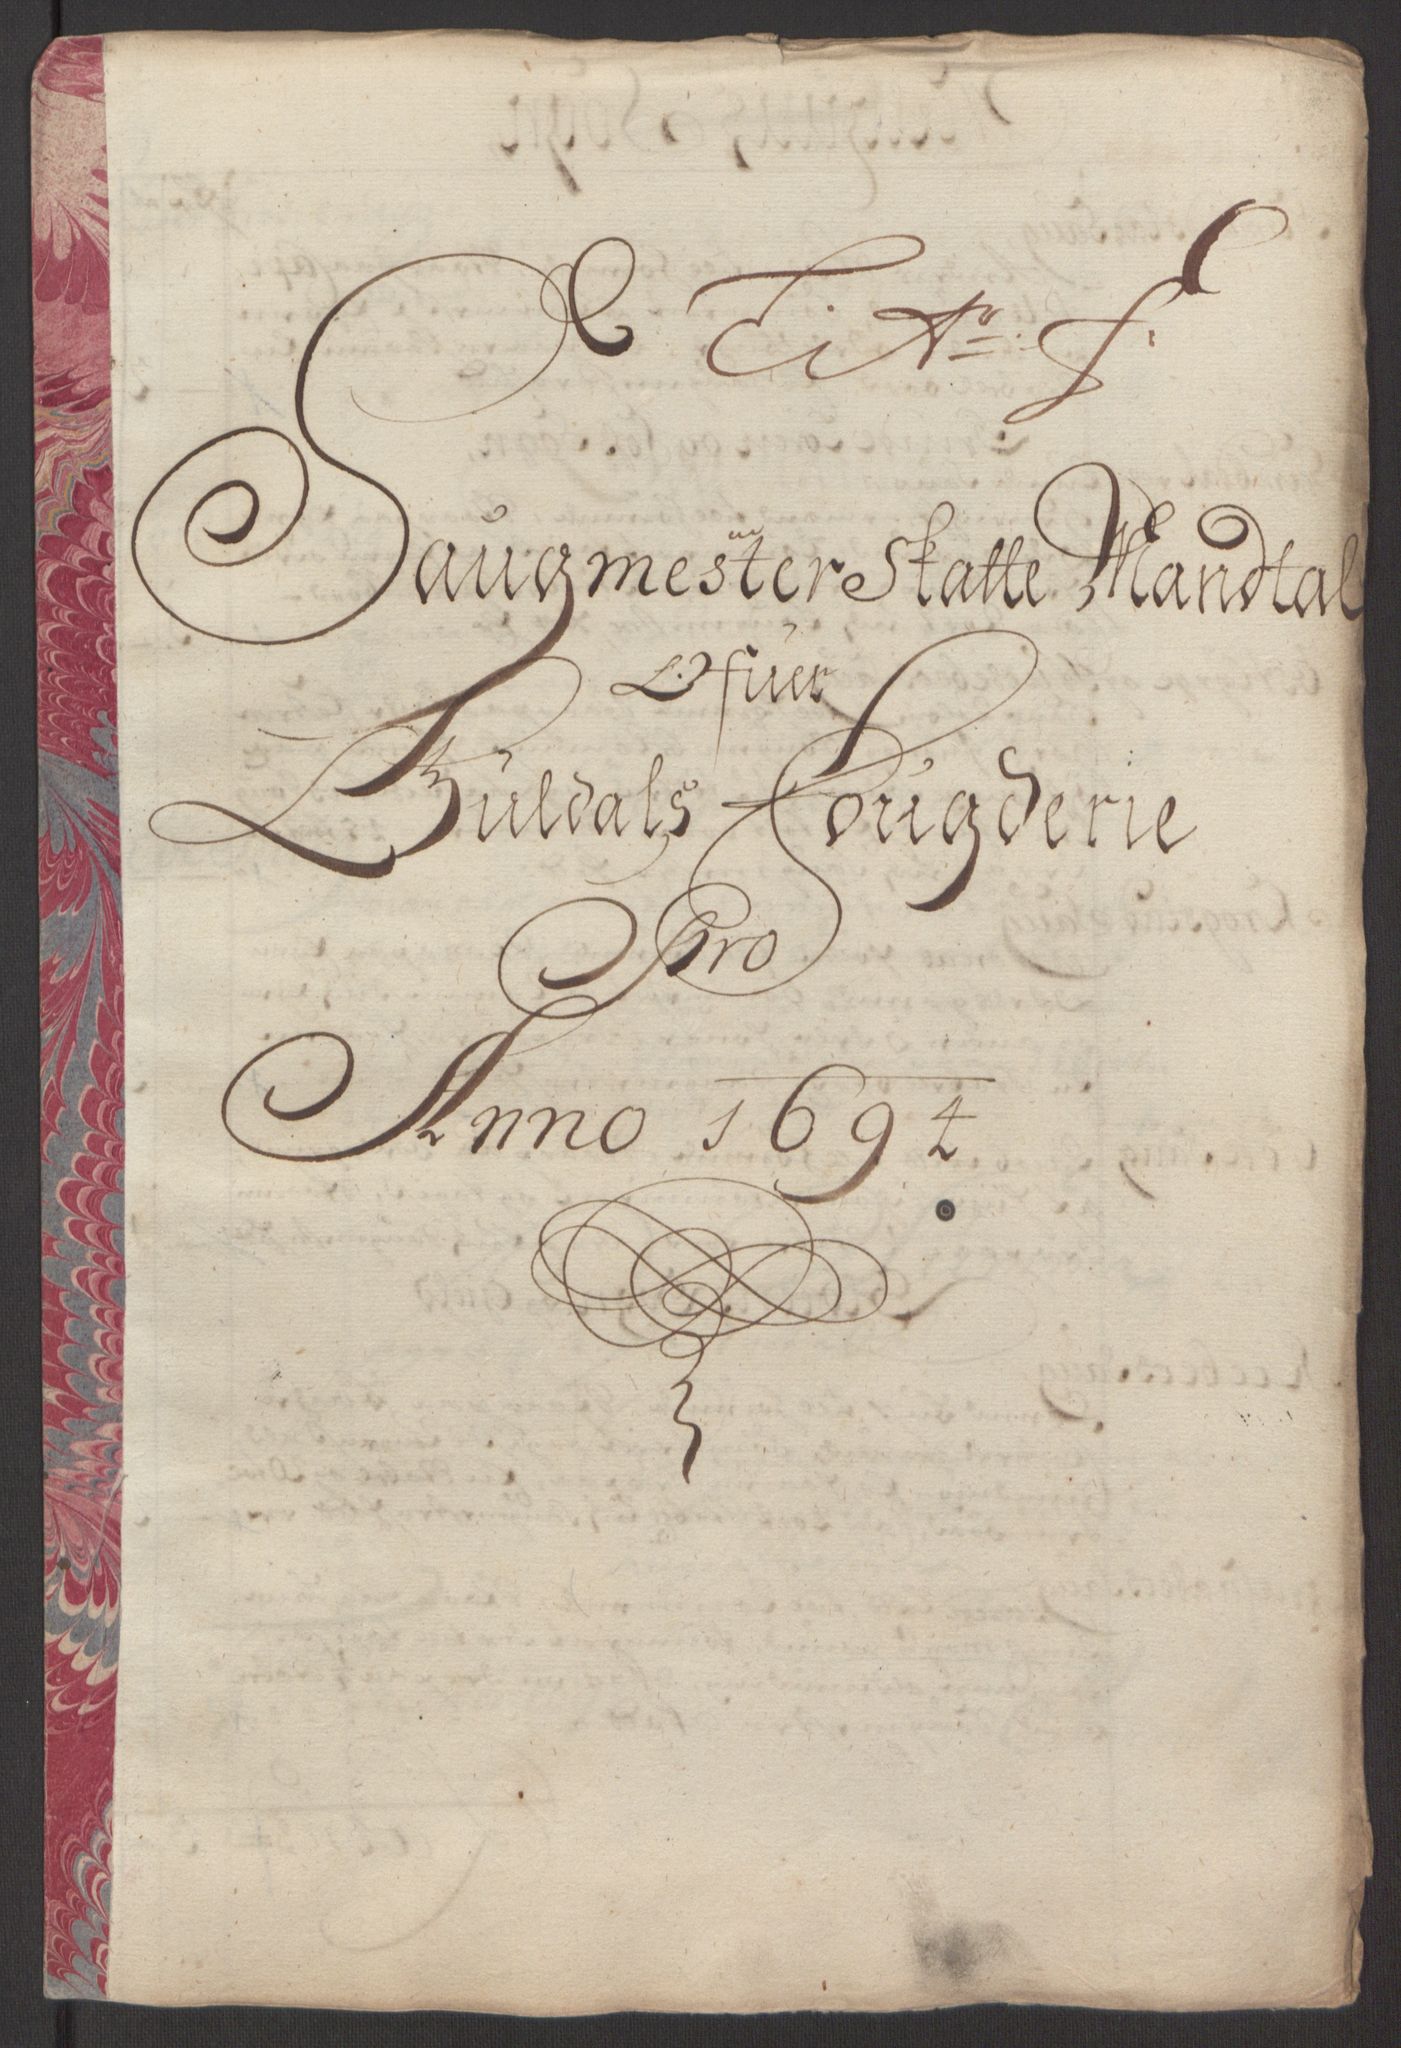 Litr. f.
Saugmester Skatte Mandtal
Ofuer
Buldals Fougderie
Pro
Anno 1694